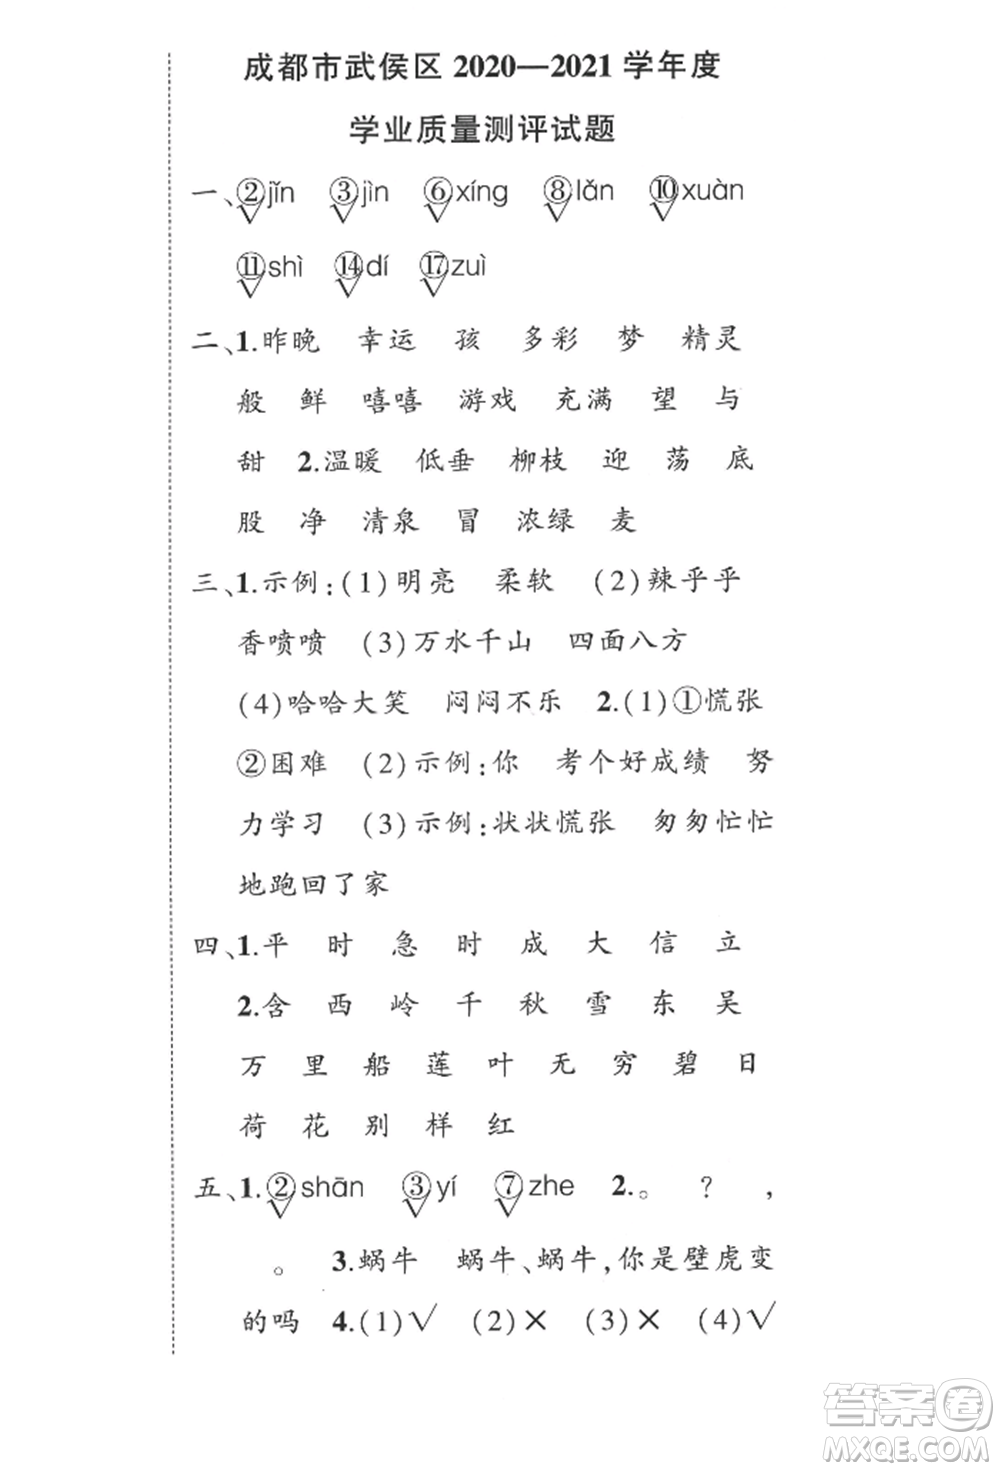 成都市武侯区 2020—2021 学年度
学业质量测评试题
一、②jǐn ③jìn ⑥xíng ⑧lǎn ⑩xuàn
⑪shì ⑭dí ⑰zuì
二、1.昨晚 幸运 孩 多彩 梦 精灵
般 鲜 嘻嘻 游戏 充满 望 与
甜 2.温暖 低垂 柳枝 迎 荡 底
股 净 清泉 冒 浓绿 麦
三、1.示例:(1)明亮 柔软 (2)辣乎乎
香喷喷 (3)万水千山 四面八方
(4)哈哈大笑 闷闷不乐 2.(1)①慌张
②困难 (2)示例:你 考个好成绩 努
力学习 (3)示例:状状慌张 匆匆忙忙
地跑回了家
四、1.平 时 急 时 成 大 信 立
2.含 西 岭 千 秋 雪 东 吴
万 里 船 莲 叶 无 穷 碧 日
荷 花 别 样 红
五、1.②shān ③yí ⑦zhe 2.。 ? ,
。 3.蜗牛 蜗牛、蜗牛,你是壁虎变
的吗 4.(1)√ (2)× (3)× (4)√
答案圈
MXQE.COM